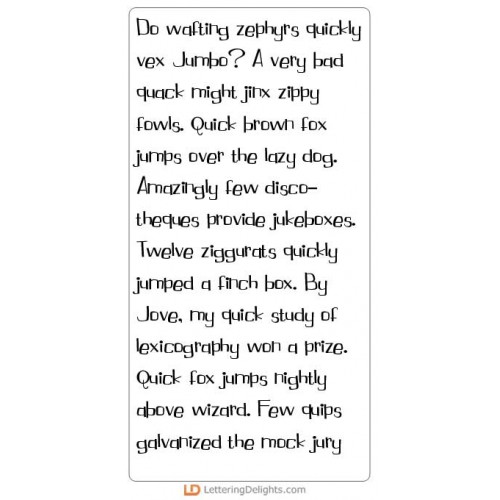 Do wafting zephyrs quickly
vex Jumbo? A very bad
quack might jinx zippy
fowls. Quick brown fox
jumps over the lazy dog.
Amazingly few disco-
theques provide jukeboxes.
Twelve ziggurats quickly
jumped a finch box. By
Jove, my quick study of
lexicography won a prize.
Quick fox jumps nightly
above wizard. Few quips
galvanized the mock jury
LD LetteringDelights.com